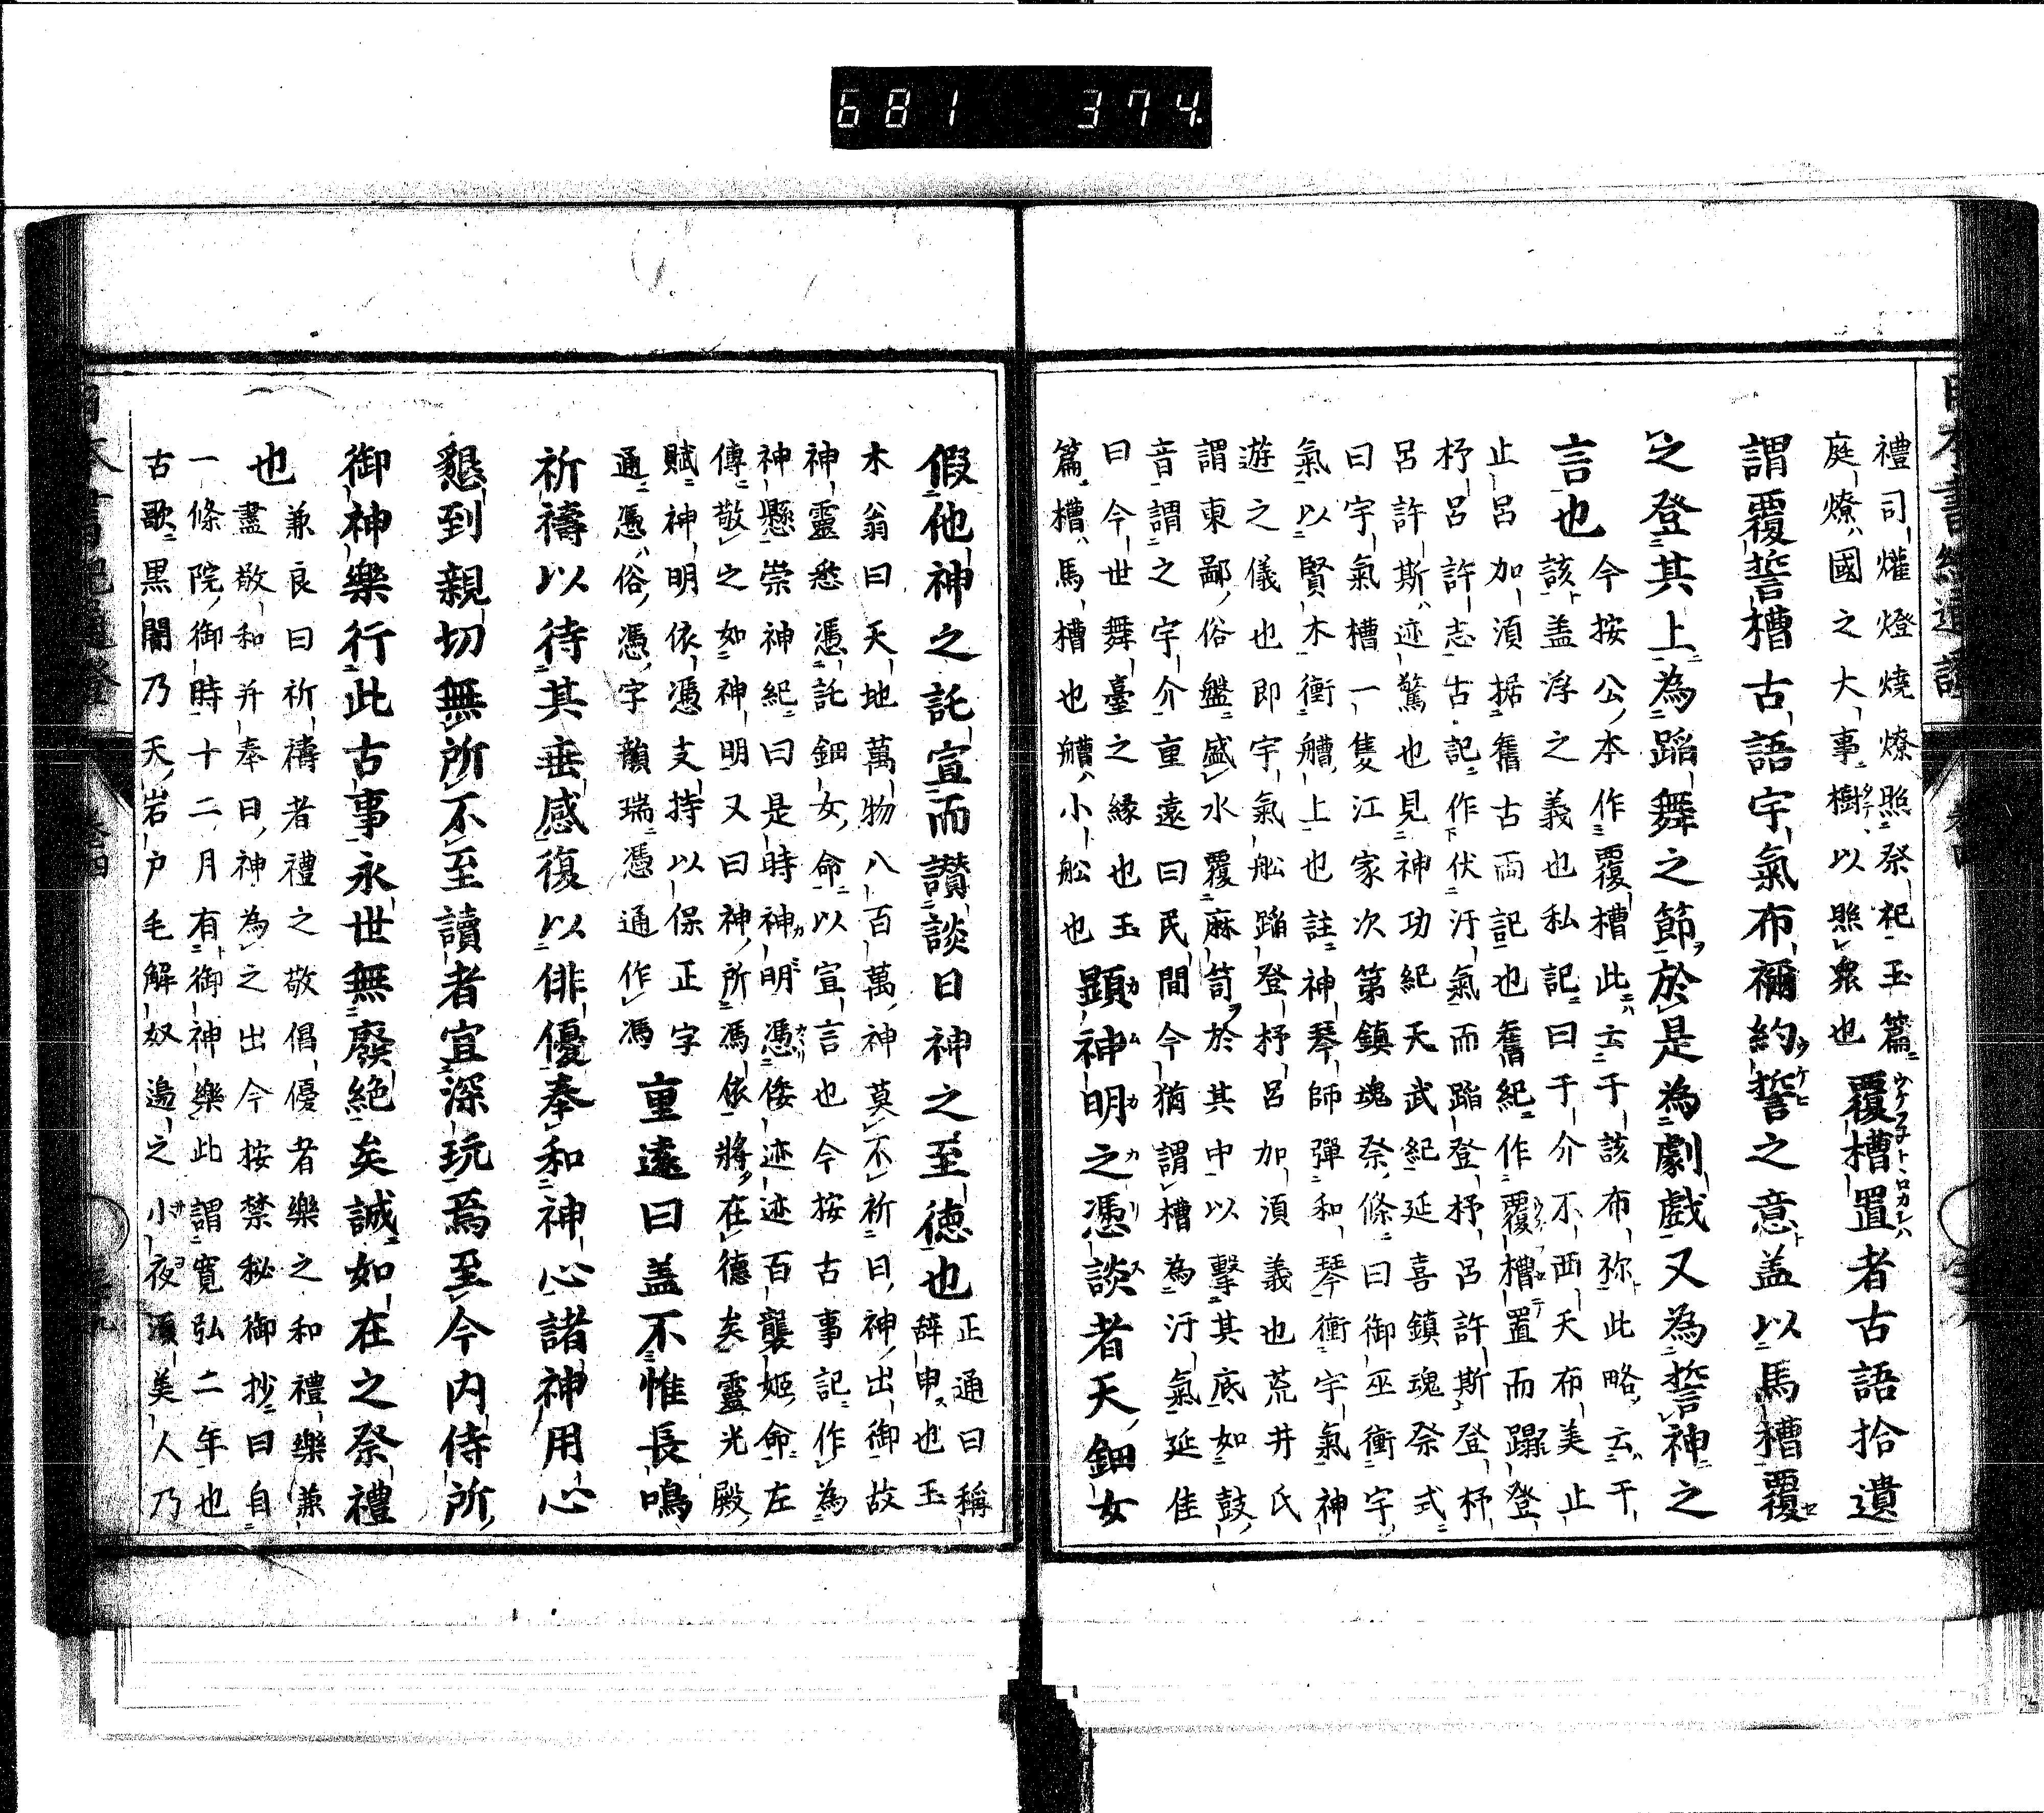 禮司爟燈燒燎照祭祀玉篇
庭燎國之大事樹以照衆也
覆槽置者古語拾遺
謂覆誓槽古語宇氣布禰約誓之意盖以馬槽覆
之登其上為蹈舞之節於是為劇戯又為誓神之
言也
今按公本作覆槽此云于該布祢此略云干
該盖浮之義也私記曰干介不西天布美止
止呂加須据舊古兩記也舊紀作覆槽置而蹋登
抒呂許志古記作伏汙氣而蹈登抒呂許斯登抒
呂許斯迹驚也見神功紀天武紀延喜鎮魂祭式
曰宇氣槽一隻江家次第鎮魂祭條曰御巫衝宇
氣以賢木衝艚上也註神琴師彈和琴衝宇氣神
遊之儀也即宇氣舩蹈登抒呂加須義也荒井氏
謂東鄙俗盤盛水覆麻笥於其中以擊其底如鼓
音謂之宇介重遠曰民間今猶謂槽為汙氣延佳
曰今世舞臺之縁也玉
篇槽馬槽也艚小舩也
顕神明之憑談者天鈿女
假他神之託宣而讃談日神之至徳也
正通曰稱
辭申也玉
木翁曰天地萬物八百萬神莫不祈日神出御故
神靈愁憑託鈿女命以宣言也今按古事記作為
神懸崇神紀曰是時神明憑倭迹迹百襲姫命左
傳敬之如神明又曰神所馮依將在德矣靈光殿
賦神明依憑支持以保正字
通憑俗憑字韻瑞憑通作馮
重遠曰盖不惟長鳴
祈禱以待其垂感復以俳優奉和神心諸神用心
懇到親切無所不至讀者宜深玩焉至今内侍所
御神樂行此古事永世無廢絶矣誠如在之祭禮
也
兼良曰祈禱者禮之敬倡優者樂之和禮樂兼
盡敬和并奉日神為之出今按禁秘御抄曰自
一條院御時十二月有御神樂此謂寛弘二年也
古歌黒闇乃天岩戸毛解奴邉之小夜須美人乃
681 374